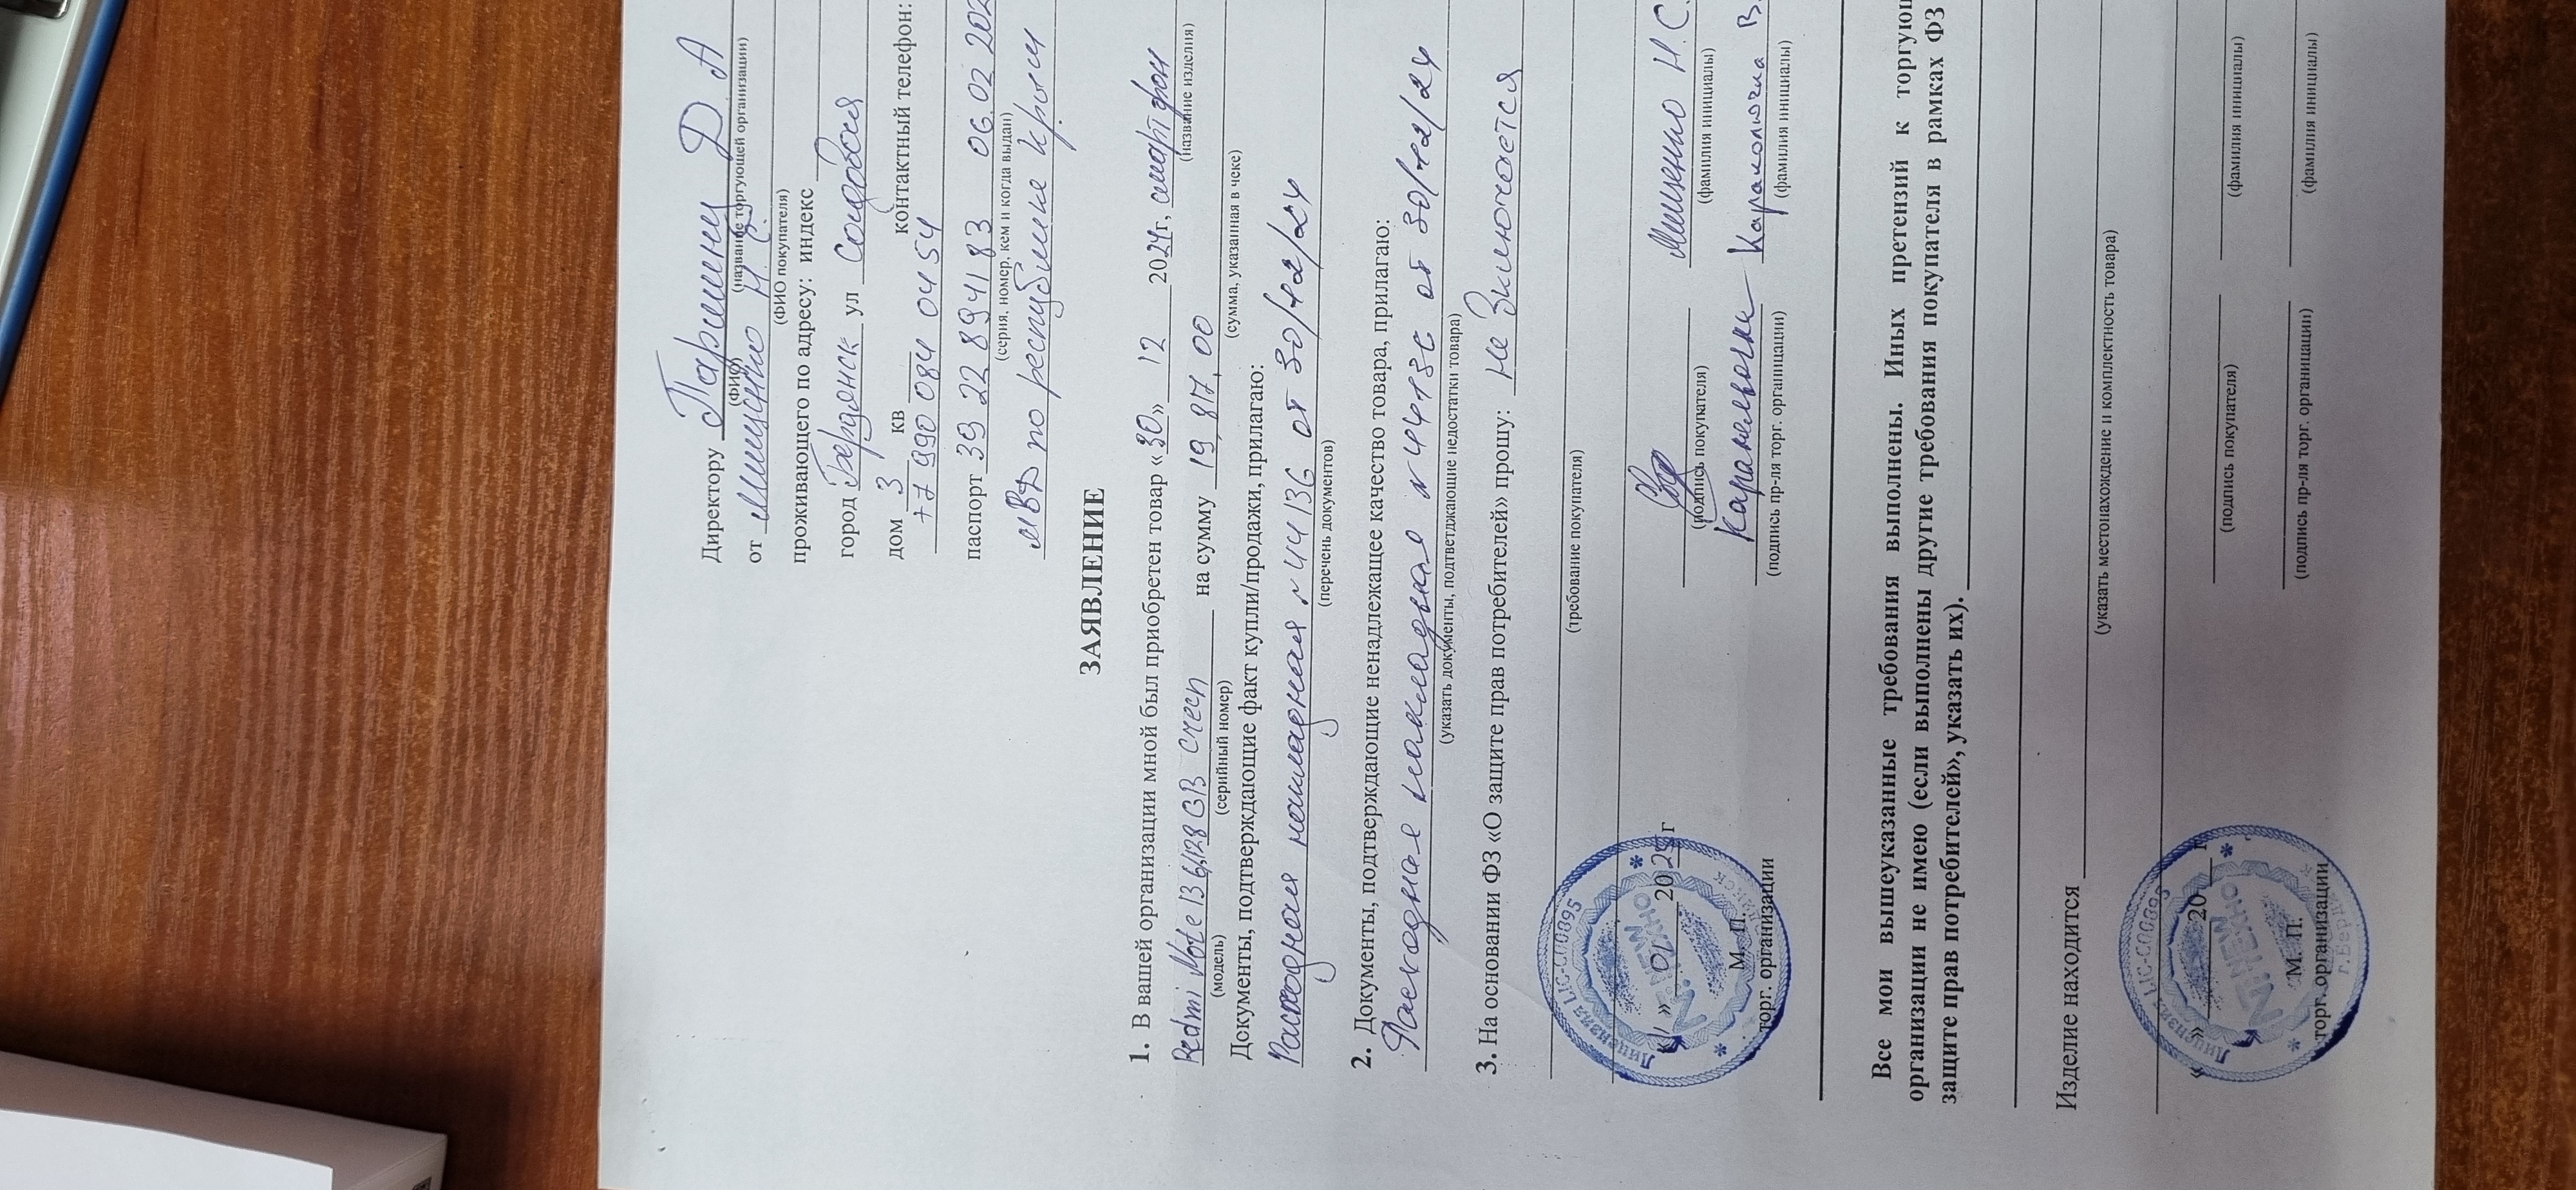 Директору Паршину Д. А
(ФИО) (название торгующей организации)
от Мищенко Н. С.
(ФИО покупателя)
проживающего по адресу: индекс
город Бердянск ул
дом 3 кв контактный телефон:
+7 990 084 04 54
паспорт 39 22 894183 06. 02 202
(серия, номер, кем и когда выдан)
МВД по республике Крым
ЗАЯВЛЕНИЕ
1. В вашей организации мной был приобретен товар «30» 12 2024г, смартфон
(название изделия)
Redmi Note 13 6/128 GB на сумму 19 817, 00
(модель) (серийный номер) (сумма, указанная в чеке)
Документы, подтверждающие факт купли/продажи, прилагаю:
Расходная накладная №44136 от 30/12/24
(перечень документов)
2. Документы, подтверждающие ненадлежащее качество товара, прилагаю:
Расходная накладная №44136 от 30/12/24
(указать документы, подтверждающие недостатки товара)
3. На основании ФЗ «О защите прав потребителей» прошу: Не Включается
(требование покупателя)
Мищенко Н. С.
(подпись покупателя) (фамилия инициалы)
« » 01 2025г
М. П.
торг. организации
(подпись пр-ля торг. организации) (фамилия инициалы)
Лицензия LIC-C00895
N:NEW
N:TEKHO
Все мои вышеуказанные требования выполнены. Иных претензий к
организации не имею (если выполнены другие требования покупателя в рамках ФЗ
защите прав потребителей», указать их).
Изделие находится
(указать местонахождение и комплектность товара)
« » 20 г
(подпись покупателя) (фамилия инициалы)
М. П.
торг. организации
(подпись пр-ля торг. организации) (фамилия инициалы)
Лицензия LIC-C00895
N:NEW
N:TEKHO